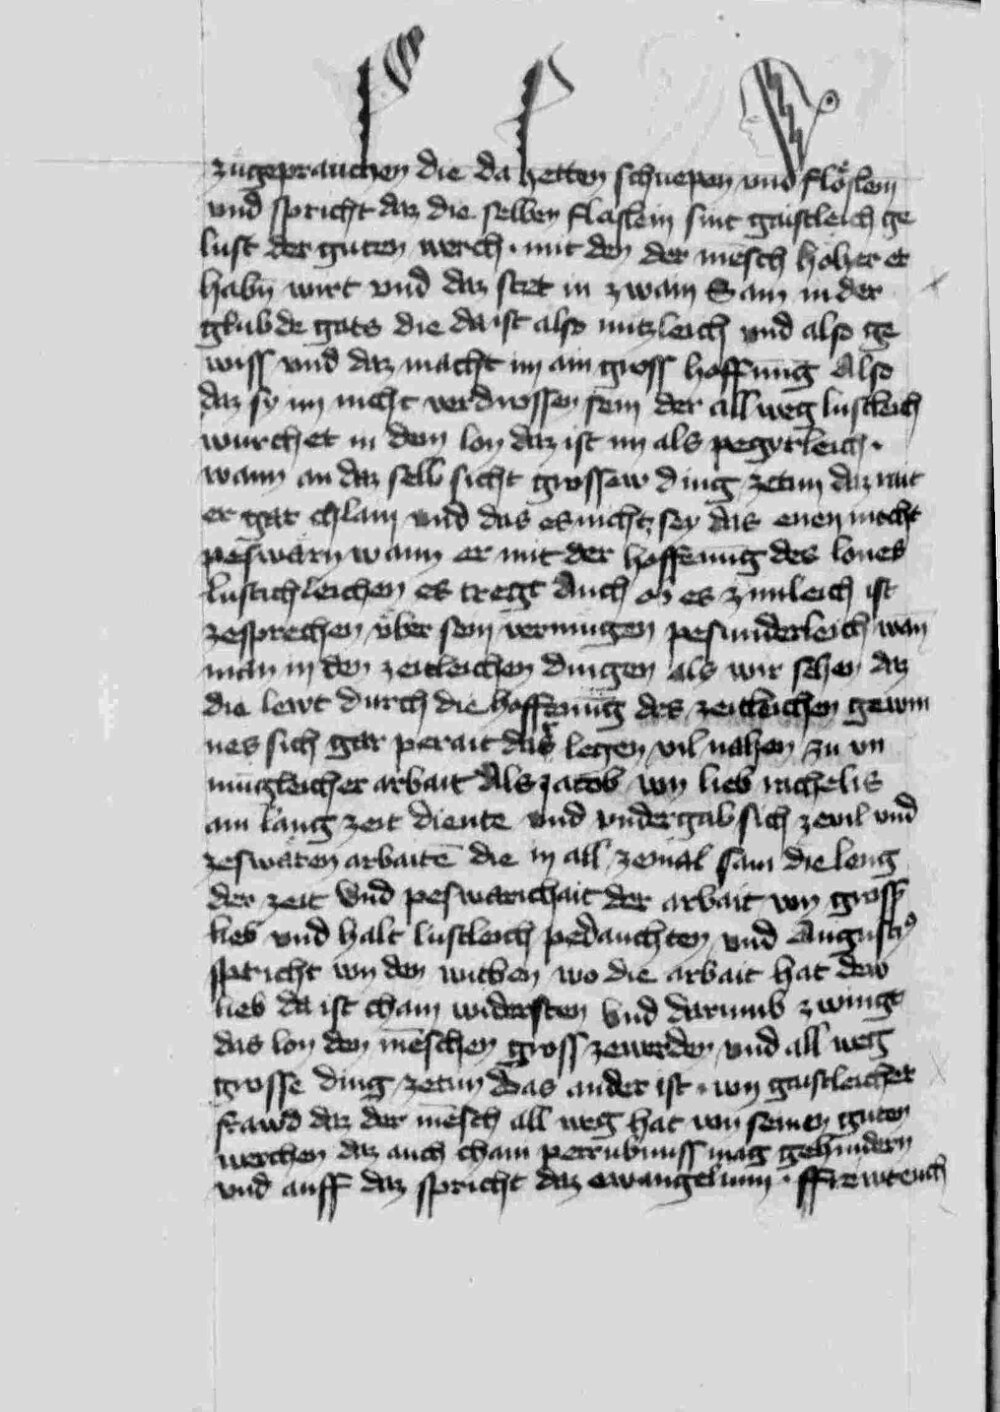 zugeprauchen die da hetten schuepen vnd flöslein
vnd spricht daz die selben flaslein sint gaistleich ge
lust der guten werch · mit den der mēsch höher er
habn̄ wirt vnd daz stet in zwain Sam in der
glubde gots die da ist also nutzleich vnd also ge
wiss vnd daz macht im ain gross hoffnung Also
daz sy im nicht verdrossen sein der allweg lustleich
wurchet in dem lon daz ist im als pegyrleich ·
wann an daz selb sicht grossew ding zetun daz mit
er gar chlain vnd das es nicht sey das enen nicht
peswärn wann er mit der hoffenūg des lones
lustichleichen es tregt Auch ob es zimleich ist
zesprechen vber sein vermugen pesunderleich wan̄
man in den zeitleichen dingen als wir sehen daz
die lewt durch die hoffenūg des zeitleichen gewin
nes sich gar perait dar legen vil nahen zu vn
mūgleicher arbait Als Jacob von lieb rachelis
ain lang zeit diente vnd vndergab sich zevil vnd
zeswären arbaitē die in all zemal sam die leng
der zeit Vnd peswärichait der arbait von gross
lieb vnd halt lustleich pedauchten vnd Augustinꝰ
spricht von den witben wo die arbait hat dew
lieb da ist chain widersten Vnd darumb zwingt
das lon den mēschen gross zewerden vnd all weg
grosse ding zetun Das ander ist · von gaistleicher
frawd daz der mēsch all weg hat von seinen guten
werchen daz auch chain petrubnuss mag gehindern
vnd auff daz spricht daz ewangelium · ffrewt euch